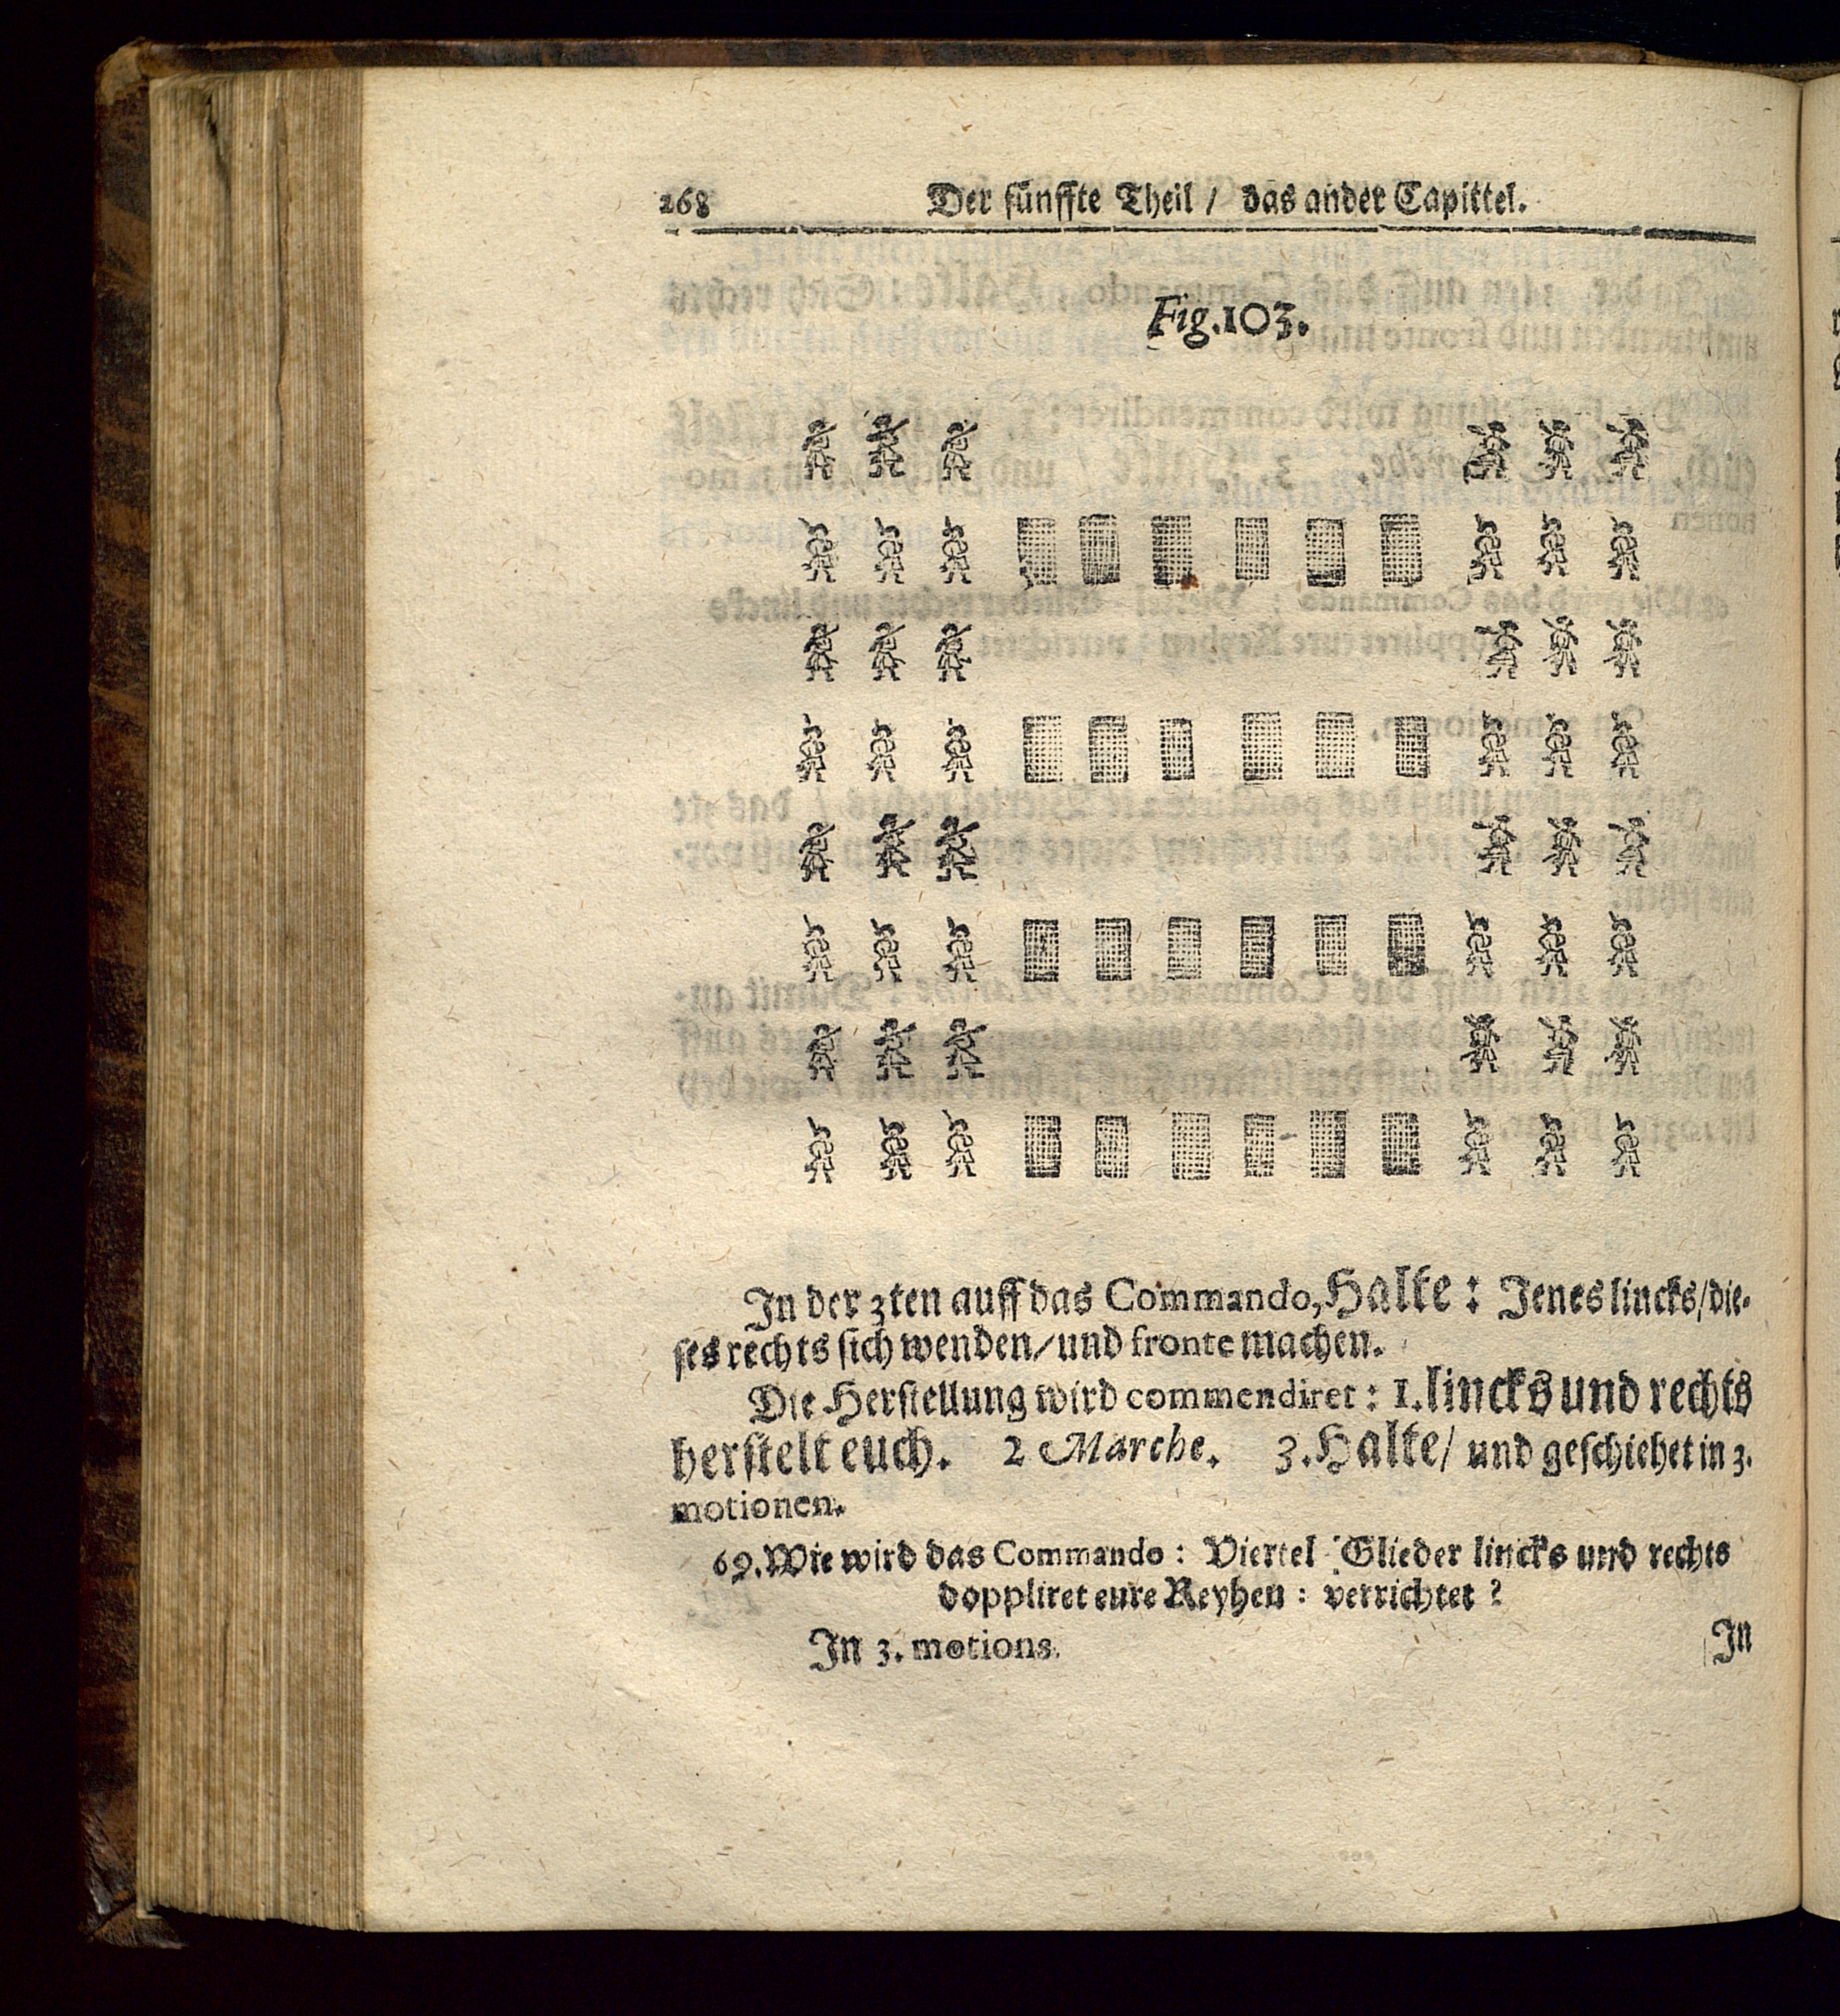 268 Der fünffte Theil / das ander Capittel.
Fig. 103.
In der 3ten auff das Commando, Halte: Jenes lincks/die-
ses rechts sich wenden/und fronte machen.
Die Herstellung wird commendiret: 1. lincks und rechts
herstelt euch. 2 Marche. 3. Halte/ und geschiehet in 3.
motionen.
69. Wie wird das Commando: Viertel Glieder lincks und rechts
doppliret eure Reyhen: verrichtet?
In 3. motions.
In